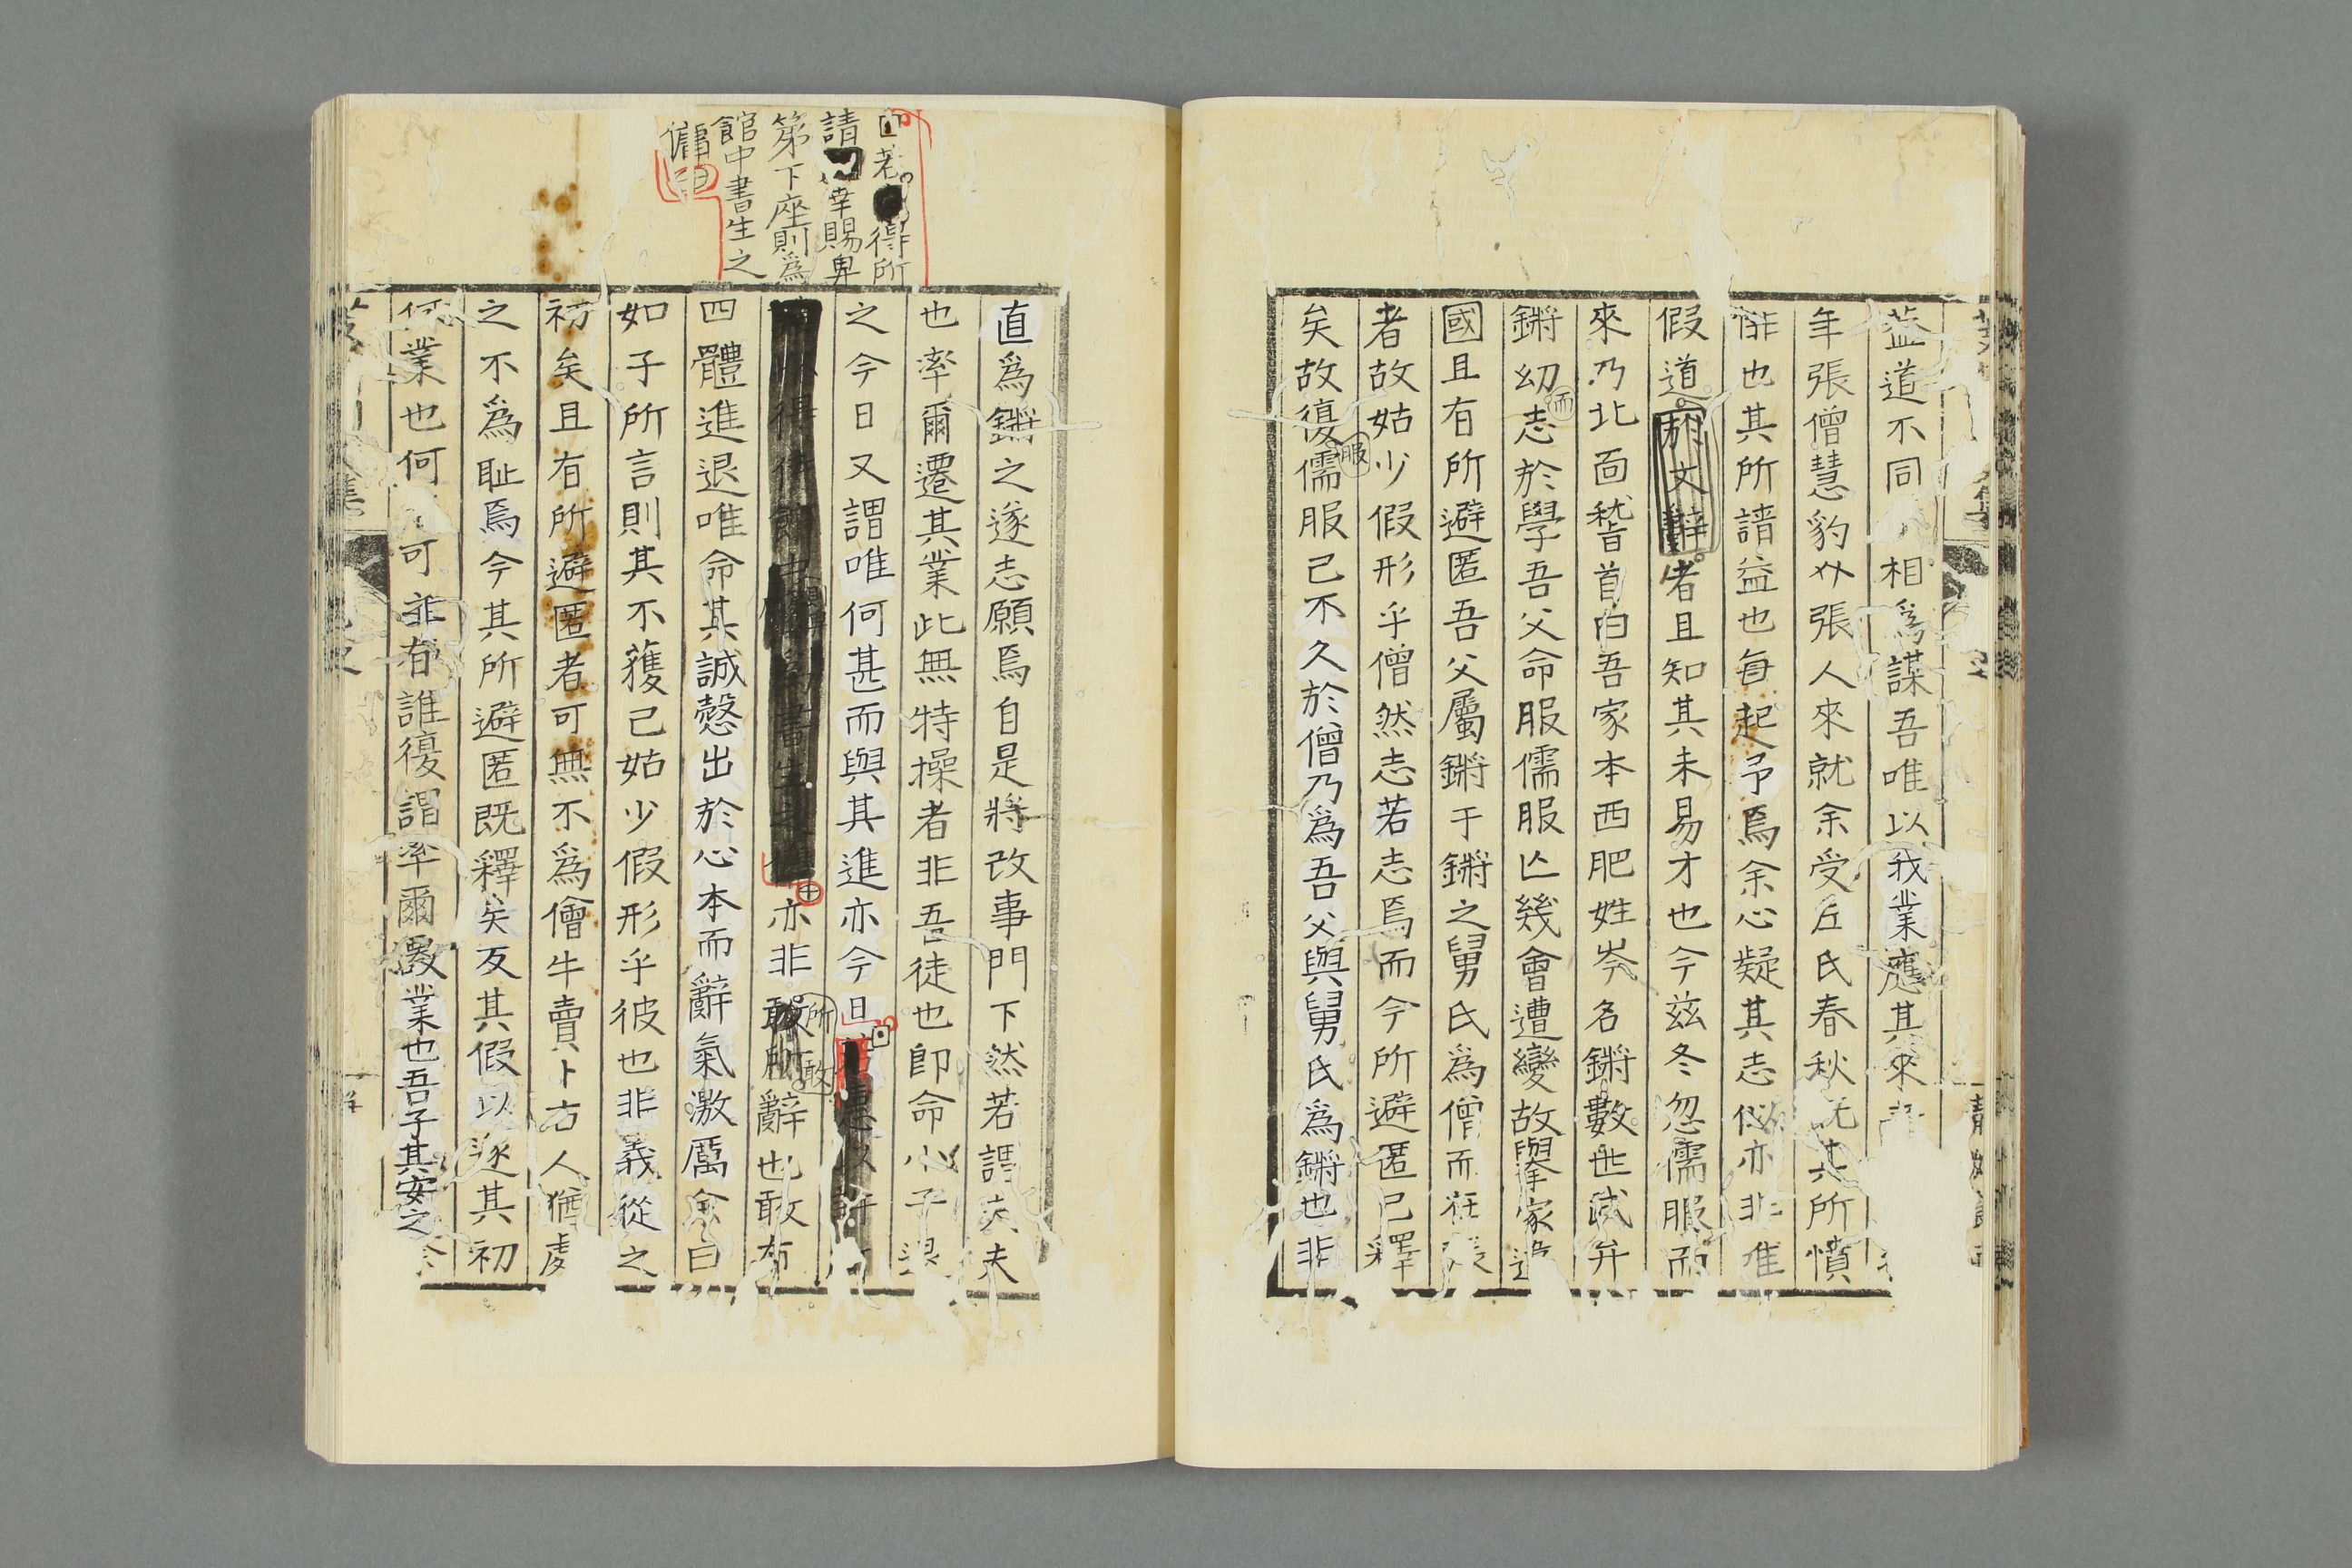 益道不同相爲謀吾唯以我業應其來
年張僧慧豹外張人來就余受丘氏春秋既其所憤
悱也其所請益也每起予焉余心疑其志似亦非唯
假道於文辭者且知其未易才也今茲冬忽儒服而
來乃北面稽首白吾家本西肥姓岑名鏘數世貳弁
鏘幼而志於學吾父命服儒服亡幾會遭變故擧家
國且有所避匿吾父屬鏘于鏘之舅氏爲僧而在
者故姑少假形乎僧然志若志焉而今所避匿已釋
矣故復服儒服已不久於僧乃爲吾父與舅氏爲鏘也非
直爲鏘之遂志願焉自是將改事門下然若謂夫
也率爾遷其業此無特操者非吾徒也卽命小子退
之今日又謂唯何甚而與其進亦今日
若得所
請幸賜卑
第下座則爲
館中書生之
傭
亦非所敢辭也敢布
四體進退唯命其誠慤出於心本而辭氣激厲余曰
如子所言則其不獲已姑少假形乎彼也非義從之
初矣且有所避匿者可無不爲儈牛賣卜方人猶
之不爲恥焉今其所避匿既釋矣反其假以遂其初
何業也何可非者誰復謂率爾改業也吾子其安之